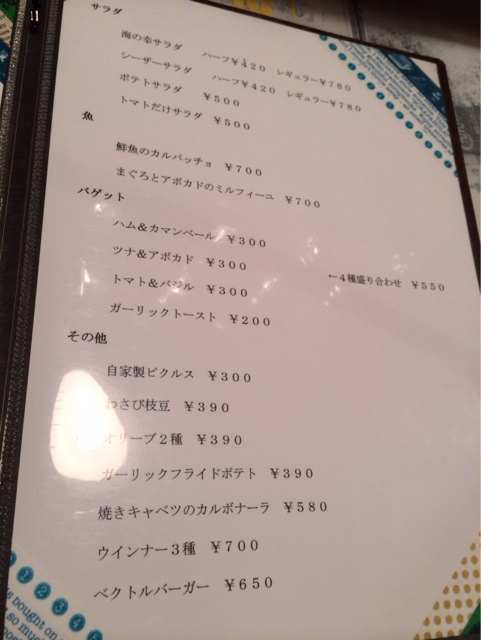 サラダ
海の幸サラダ ハーフ￥420 レギュラー￥780
シーザーサラダ ハーフ￥420 レギュラー￥780
ポテトサラダ ￥500
トマトだけサラダ ￥500
魚
鮮魚のカルパッチョ ￥700
まぐろとアボカドのミルフィーユ ￥700
バゲット
ハム＆カマンベール ￥300
ツナ＆アボカド ￥300
←４種盛り合わせ ￥550
トマト＆バジル ￥300
ガーリックトースト ￥200
その他
自家製ピクルス ￥300
わさび枝豆 ￥390
オリーブ２種 ￥390
ガーリックフライドポテト ￥390
焼きキャベツのカルボナーラ ￥580
ウインナー３種 ￥700
ベクトルバーガー ￥650
1 2 3 4
bought on
so much